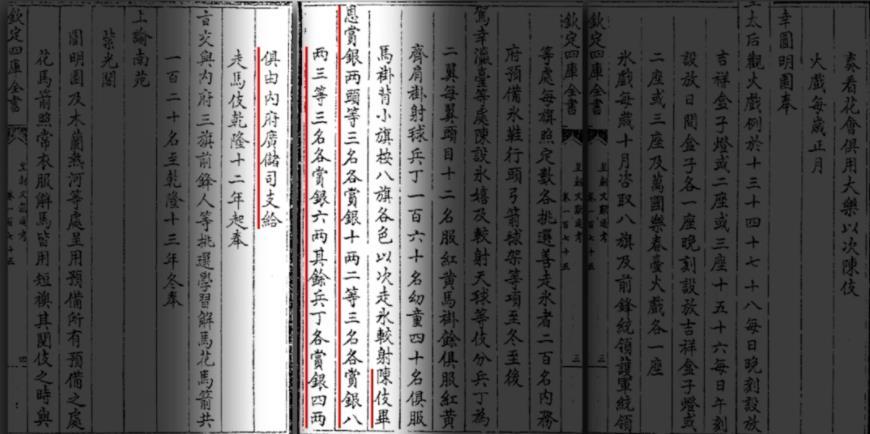 奏看花會俱用大樂以次陳伎
大戲每歲正月
幸圓明園奉
皇太后觀火戲例於十三十四十七十八每日晚刻設放
吉祥盒子燈或二座或三座十五十六每日午刻
設放日間盒子各一座晚刻設放吉祥盒子燈或
二座或三座及萬國樂春臺火戲各一座
氷戲每歲十月咨取八旗及前鋒統領護軍統領
欽定四庫全書 皇朝文獻通考 卷一百七十五 三
欽定四庫全書 皇朝文獻通考 卷一百七十五 三
等處每旗照定數各挑選善走氷者二百名內務
府預備氷鞋行頭弓箭球架等項至冬至後
駕幸瀛臺等處陳設氷嬉及較射天球等伎分兵丁為
二翼每翼頭目十二名服紅黃馬褂餘俱服紅黃
齊肩褂射球兵丁一百六十名幼童四十名俱服
馬褂背小旗按八旗各色以次走氷較射陳伎畢
恩賞銀兩頭等三名各賞銀十兩二等三名各賞銀八
兩三等三名各賞銀六兩其餘兵丁各賞銀四兩
俱由內府廣儲司支給
走馬伎乾隆十二年起奉
旨交與內府三旗前鋒人等挑選學習解馬花馬箭共
一百二十名至乾隆十三年冬奉
上諭南苑
紫光閣
圓明園及木蘭熱河等處呈用預備所有預備之處
花馬箭照常衣服解馬皆用短襖其閱伎之時與
欽定四庫全書 皇朝文獻通考 卷一百七十五 四